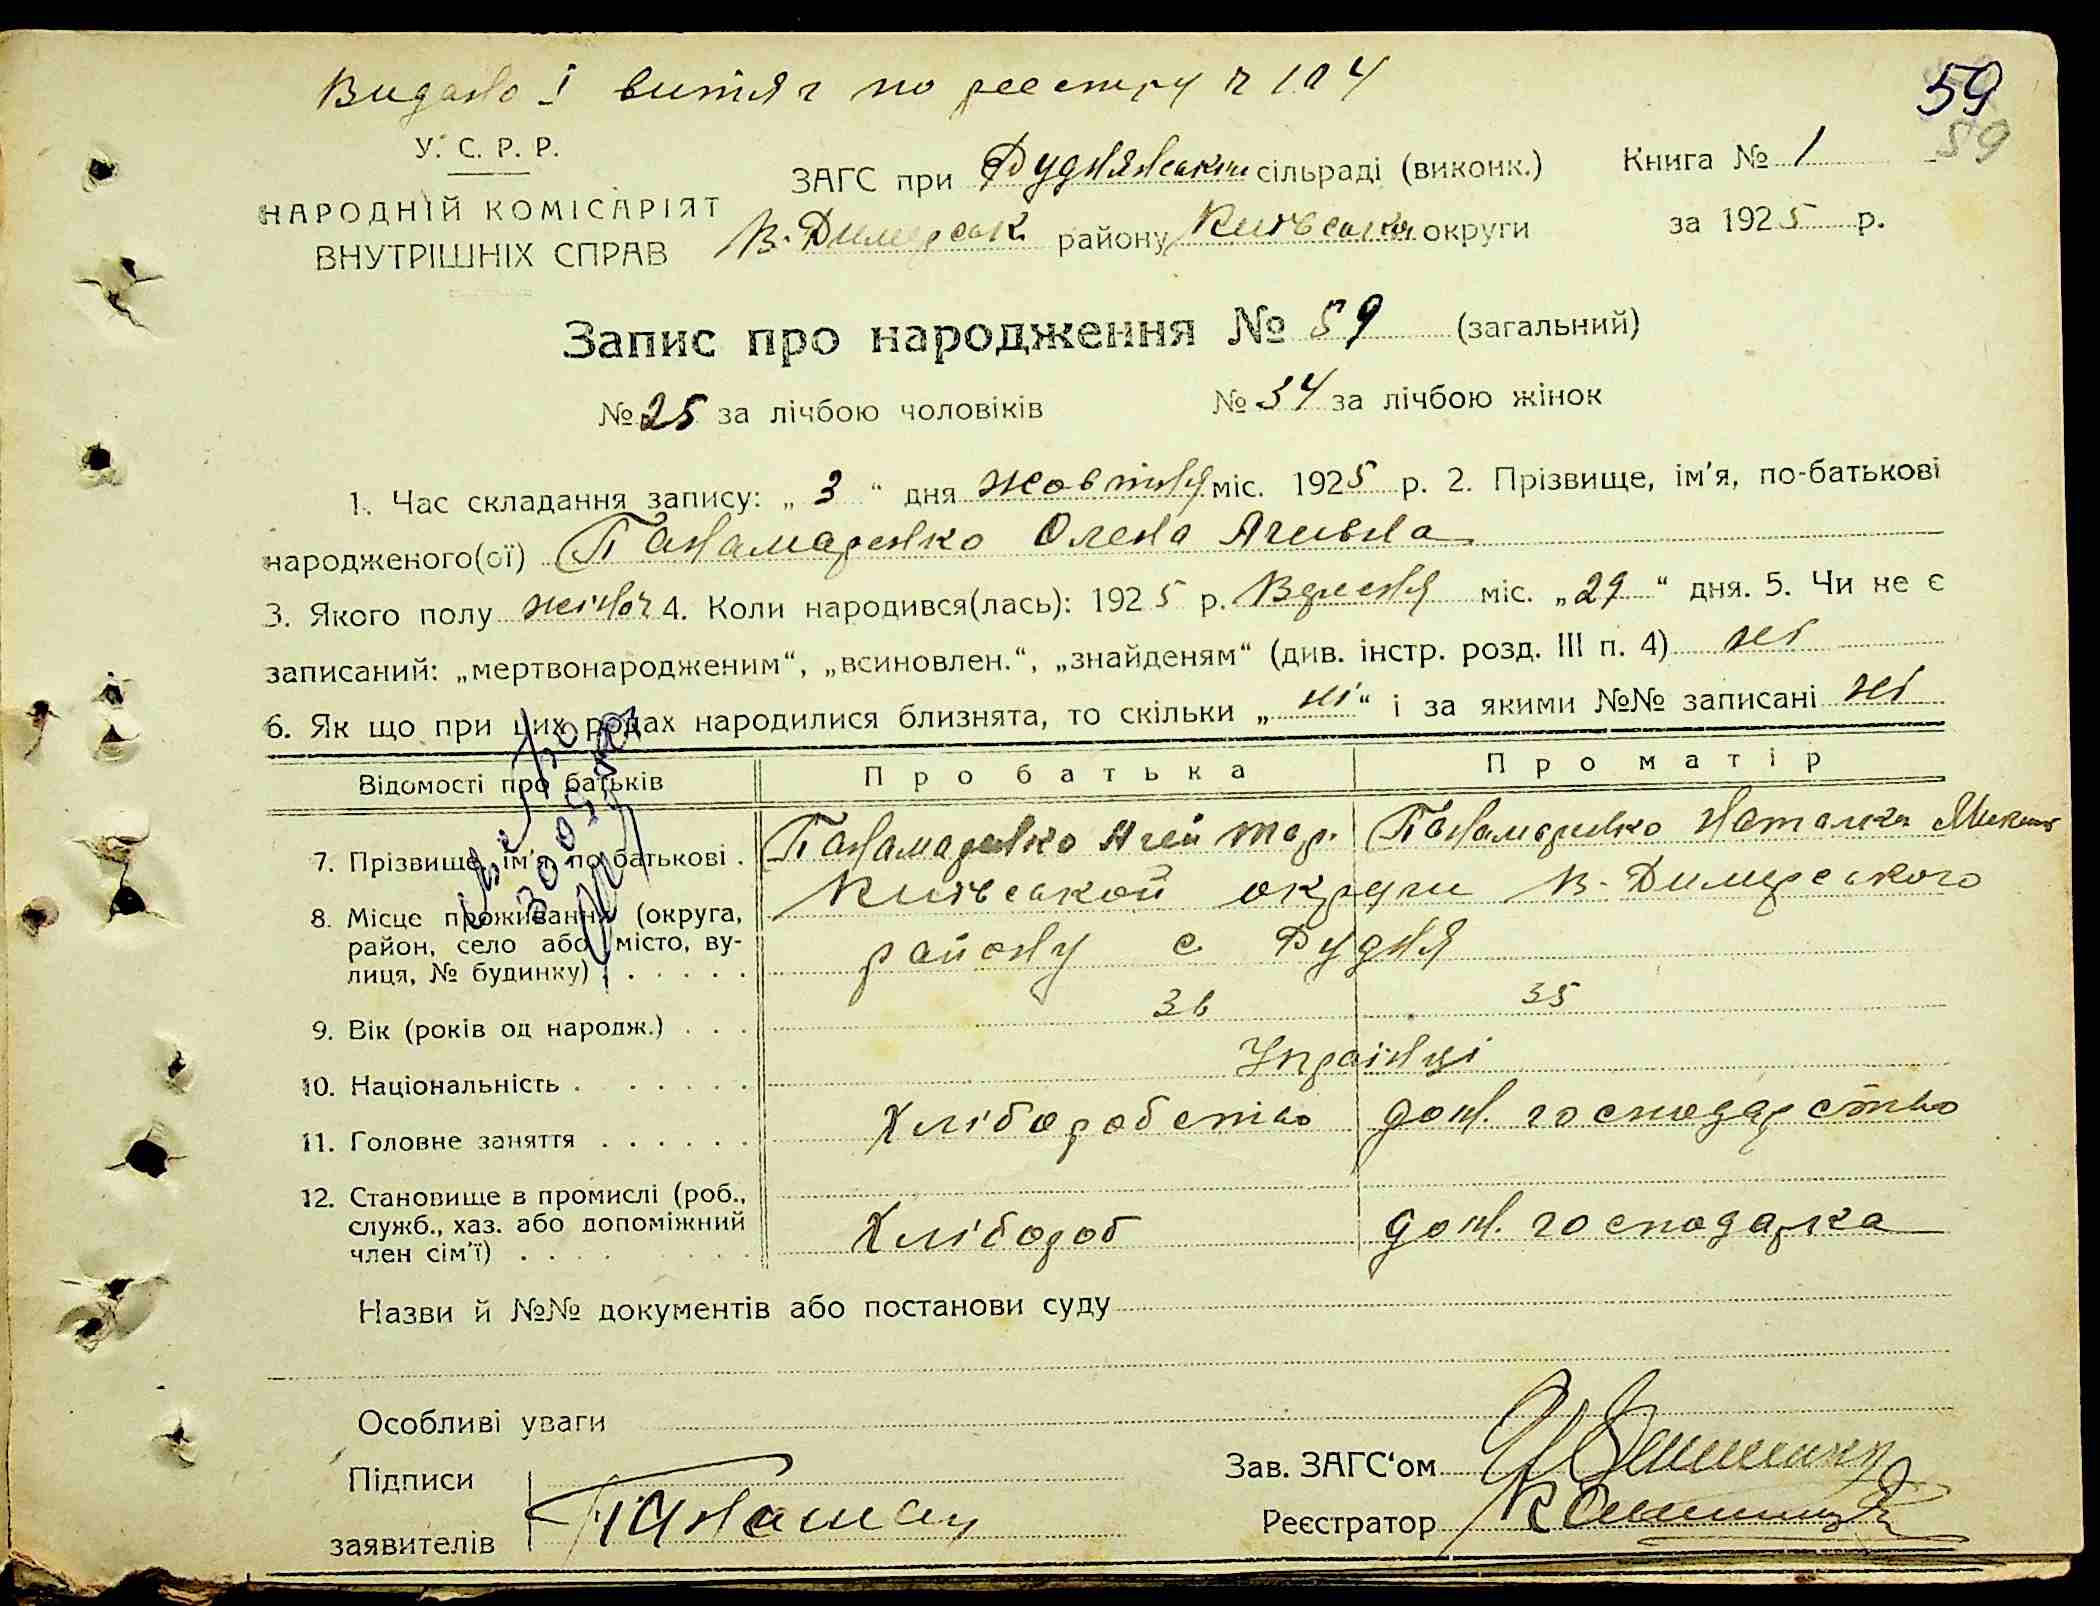 Видано 1 витяг по реестру № 104
59
59
У. С. Р. Р.
НАРОДНІЙ КОМІСАРІЯТ
ВНУТРІШНІХ СПРАВ
ЗАГС при Руднянськіи сільраді (виконк.) Книга № 1
В-Димерськ району Київської округи за 1925 р.
Запис про народження № 59 (загальний)
№ 25 за лічбою чоловіків № 34 за лічбою жінок
1. Час складання запису: „ 3 “ дня жовтня міс. 1925 р. 2. Прізвище, ім'я, по-батькові
народженого(ої) Панамаренко Олена Агеивна
3. Якого полу жіноч 4. Коли народився(лась): 1925 р. Вресня міс. „29“ дня. 5. Чи не є
записаний: „мертвонародженим“, „всиновлен.“, „знайденям“ (див. інстр. розд. III п. 4) ні
6. Як що при цих родах народилися близнята, то скільки „ ні “ і за якими №№ записані ні
Відомості про батьків Про батька Про матір
7. Прізвище, ім'я, по батькові . Панамаренко Агей Тар. Панамаренко Наталка
8. Місце проживання (округа, Київськой округи В-Димерського
район, село або місто, ву- району с Рудня
лиця, № будинку) . . . . . .
9. Вік (років од народж.) . . . 36 35
10. Національність . . . . . . Українці
11. Головне заняття . . . . . . Хліборобство дом. господарство
12. Становище в промислі (роб.,
служб., хаз. або допоміжний Хлібороб дом. господарка
член сім'ї) . . . . . .
Назви й №№ документів або постанови суду
Особливі уваги
Підписи Зав. ЗАГС‘ом
заявителів Реєстратор